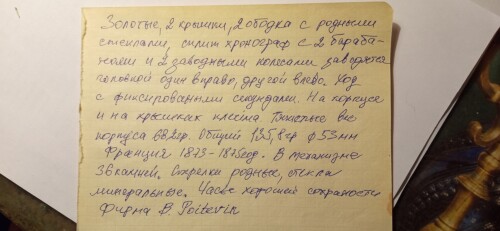 Золотые, 2 крышки, 2 ободка с родными
стеклами, сплит хронограф с 2 бараба-
нами и 2 заводными колесами заводятся
головкой один вправо, другой влево. Ход
с фиксированными секундами. На корпусе
и на крышках клейма Тяжелые вес
корпуса 68,2гр. Общий 135,8гр ф53мм
Франция 1873-1875год. В механизме
36 камней. Стрелки родные, стекла
минеральные. Часы хорошей сохраности
Фирма B. Poitevin